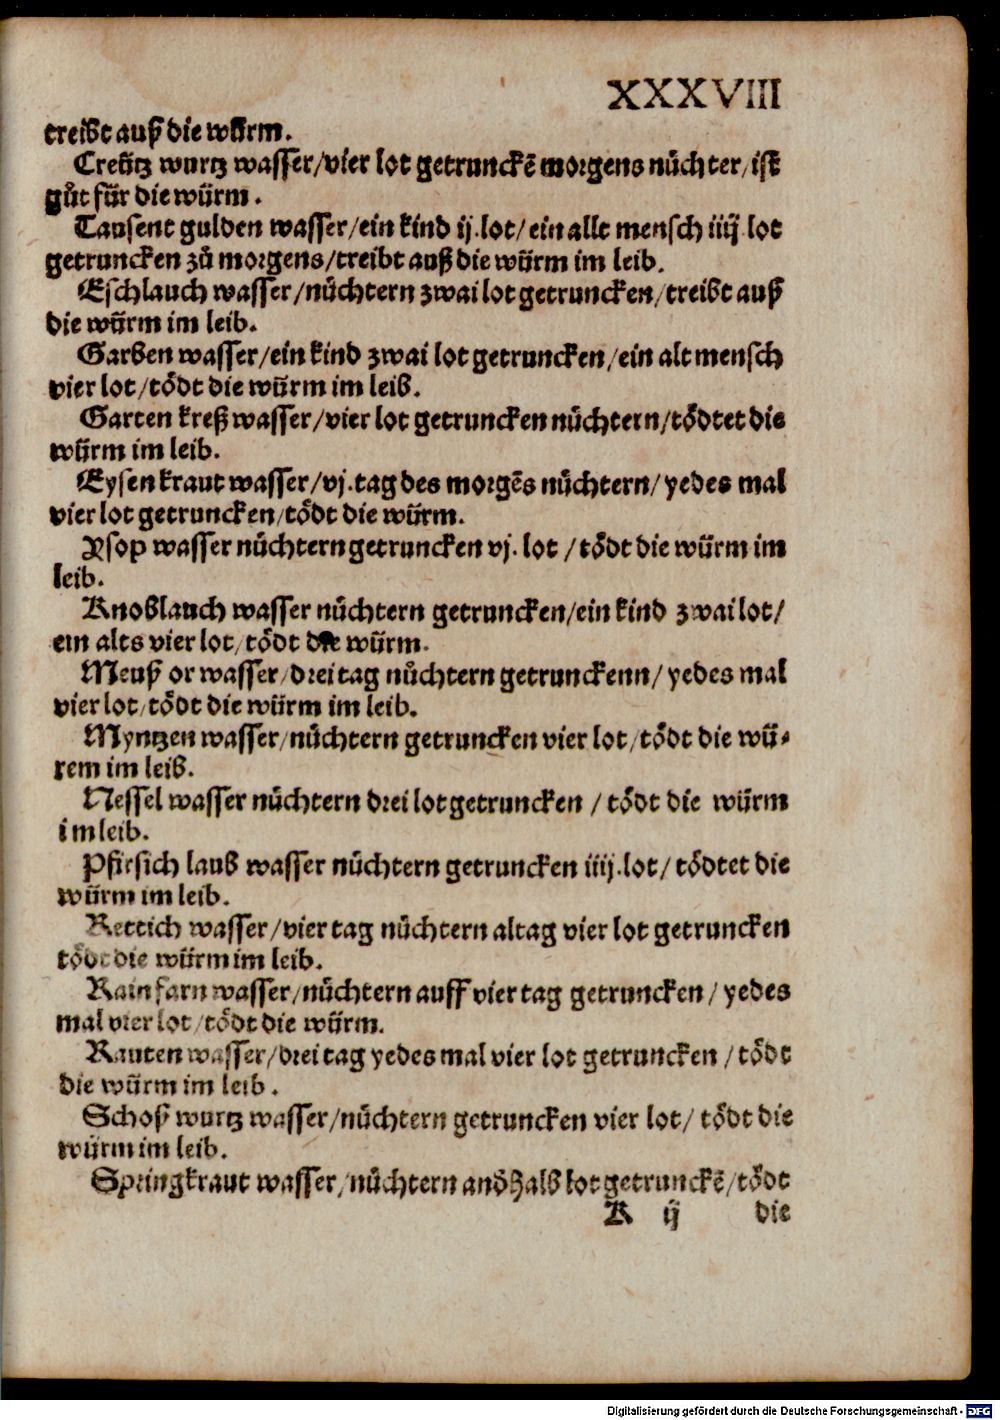 XXXVIII
treibt auß die würm.
Creütz wurtz wasser/vier lot getrunckē morgens nůchter/ist
gůt für die würm.
Tausent gulden wasser/ein kind ij.lot/ein allt mensch iiij lot
getruncken zů morgens/treibt auß die würm im leib.
Eschlauch wasser/nůchtern zwai lot getruncken/treibt auß
die würm im leib.
Garben wasser/ein kind zwai lot getruncken/ein alt mensch
vier lot/tödt die würm im leib.
Garten kreß wasser/vier lot getruncken nůchtern/tödtet die
würm im leib.
Eysenkraut wasser/vj.tag des morgēs nůchtern/yedes mal
vier lot getruncken/tödt die würm.
Ysop wasser nůchtern getruncken vj. lot /tödt die würm im
leib.
Knoblauch wasser nůchtern getruncken/ein kind zwai lot/
ein alts vier lot/tödt die würm.
Meuß or wasser/drei tag nůchtern getrunckenn/yedes mal
vier lot/tödt die würm im leib.
Myntzen wasser/nůchtern getruncken vier lot/tödt die wü⸗
rem im leib.
Nessel wasser nůchtern drei lot getruncken / tödt die würm
im leib.
Pfirsich laub wasser nůchtern getruncken iiij.lot/tödtet die
würm im leib.
Rettich wasser/vier tag nůchtern altag vier lot getruncken
tödt die würm im leib.
Rain farn wasser/nůchtern auff vier tag getruncken/yedes
mal vier lot/tödt die würm.
Rauten wasser/drei tag yedes mal vier lot getruncken /tödt
die würm im leib.
Schoß wurtz wasser/nůchtern getruncken vier lot/ tödt die
würm im leib.
Springkraut wasser/nůchtern andhalb lot getrunckē/tödt
K ij die
Digitalisierung gefördert durch die Deutsche Forschungsgemeinschaft - DFG